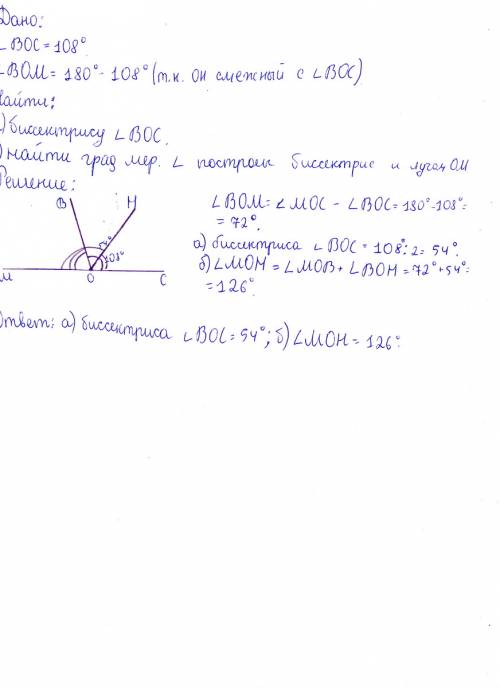 Дано:
∠BOC = 108°
∠BOM = 180° - 108° (т.к. он смежный с ∠BOC)
айти:
) биссектрису ∠BOC.
) найти град мер. ∠ построен биссектрис и лучом OM
Решение:
B H
108°
M O C
∠BOM = ∠MOC - ∠BOC = 180° - 108° =
= 72°.
а) биссектриса ∠BOC = 108° : 2 = 54°.
б) ∠MOH = ∠MOB + ∠BOH = 72° + 54° =
= 126°.
Ответ: а) биссектриса ∠BOC = 54°; б) ∠MOH = 126°.